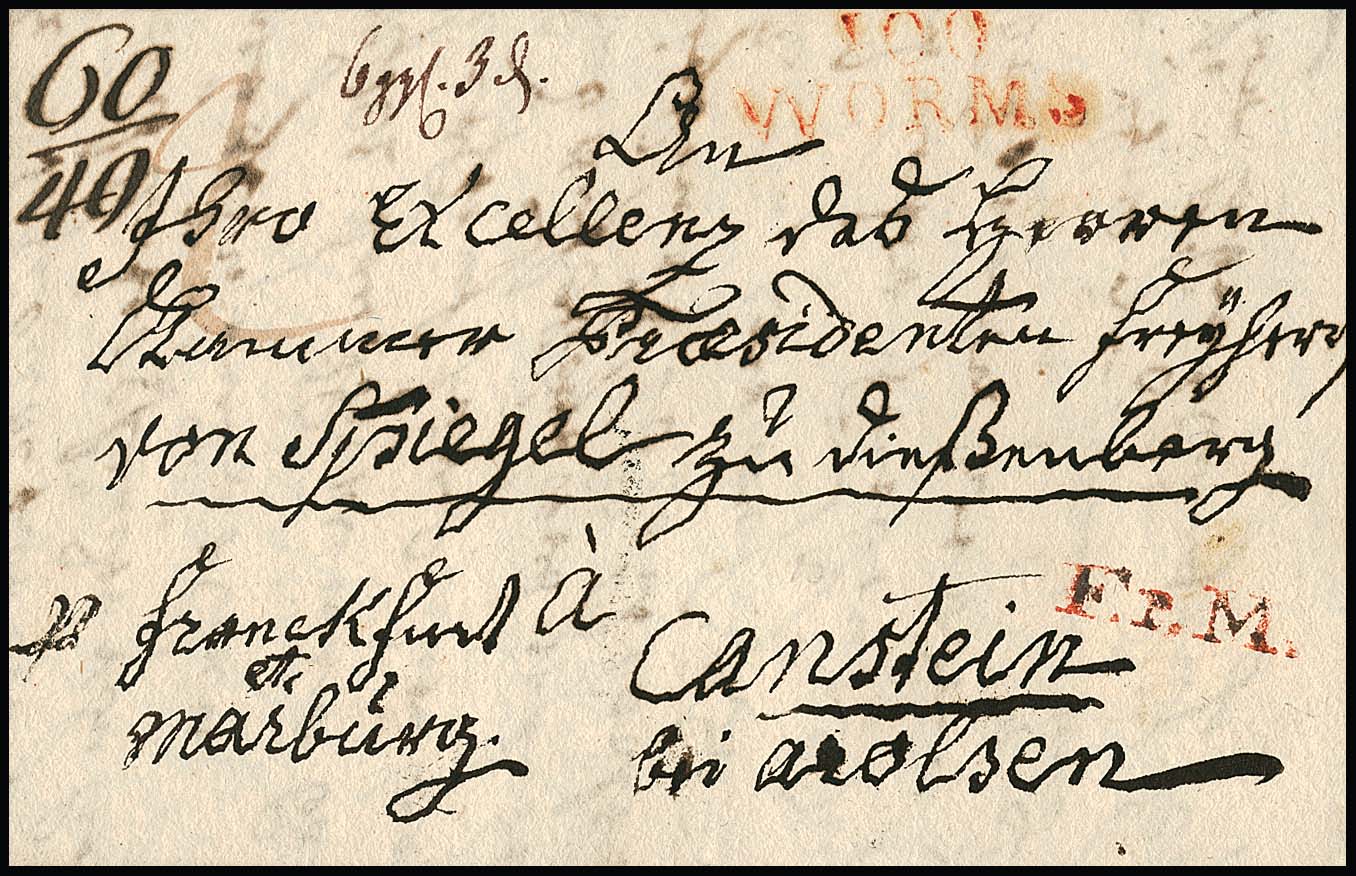 60
40
6 ggl. 3 d.
100
WORMS
An
Ihro Excellenz des Herren
Kammer Præsidenten Freÿherr
von Spiegel zu dießenberg
Franckfurt
et
Marbùrg.
à
Canstein
bei arolsen
F.2.M.